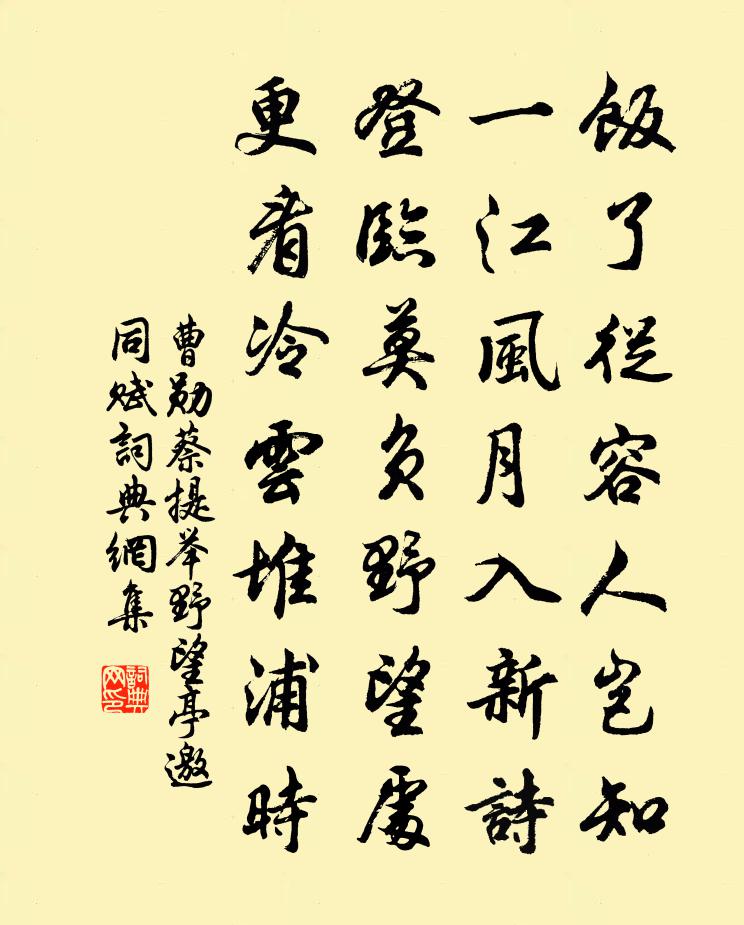 飯了從容人豈知
一江風月入新詩
登臨莫負野望處
更看冷雲堆浦時
曹勛蔡提举野望亭邀
同赋詞典網集
詞典
网印